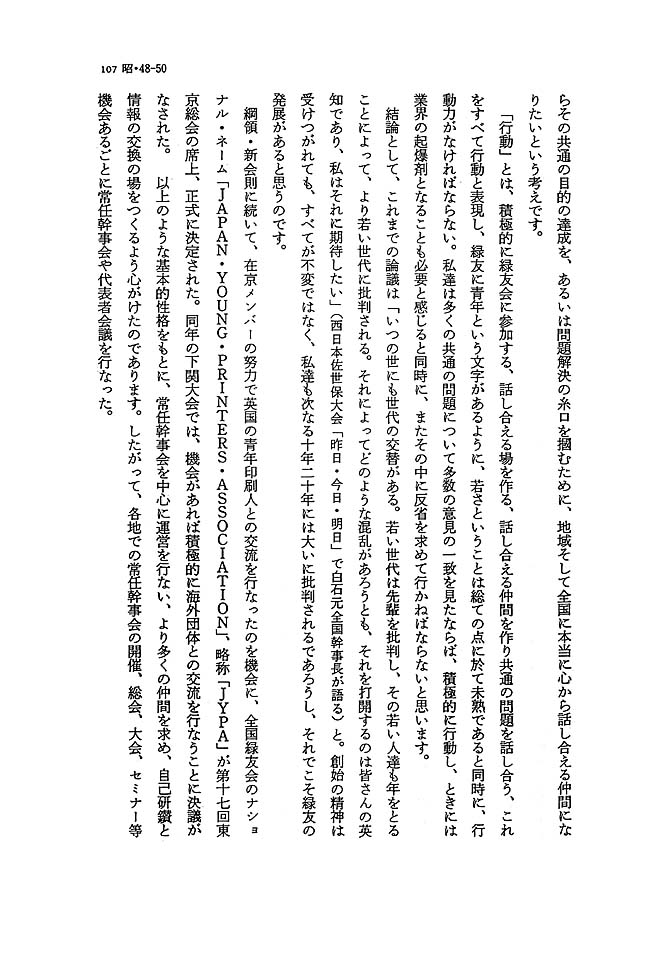 107 昭・48-50
らその共通の目的の達成を、あるいは問題解決の糸口を摑むために、地域そして全国に本当に心から話し合える仲間にな
りたいという考えです。
「行動」とは、積極的に緑友会に参加する、話し合える場を作る、話し合える仲間を作り共通の問題を話し合う、これ
をすべて行動と表現し、緑友に青年という文字があるように、若さということは総ての点に於て未熟であると同時に、行
動力がなければならない。私達は多くの共通の問題について多数の意見の一致を見たならば、積極的に行動し、ときには
業界の起爆剤となることも必要と感じると同時に、またその中に反省を求めて行かねばならないと思います。
結論として、これまでの論議は「いつの世にも世代の交替がある。若い世代は先輩を批判し、その若い人達も年をとる
ことによって、より若い世代に批判される。それによってどのような混乱があろうとも、それを打開するのは皆さんの英
知であり、私はそれに期待したい」（西日本佐世保大会「昨日・今日・明日」で白石元全国幹事長が語る）と。創始の精神は
受けつがれても、すべてが不変ではなく、私達も次なる十年二十年には大いに批判されるであろうし、それでこそ緑友の
発展があると思うのです。
綱領・新会則に続いて、在京メンバーの努力で英国の青年印刷人との交流を行なったのを機会に、全国緑友会のナショ
ナル・ネーム「JAPAN・YOUNG・PRINTERS・ASSOCIATION」、略称「JYPA」が第十七回東
京総会の席上、正式に決定された。同年の下関大会では、機会があれば積極的に海外団体との交流を行なうことに決議が
なされた。　以上のような基本的性格をもとに、常任幹事会を中心に運営を行ない、より多くの仲間を求め、自己研鑽と
情報の交換の場をつくるよう心がけたのであります。したがって、各地での常任幹事会の開催、総会、大会、セミナー等
機会あるごとに常任幹事会や代表者会議を行なった。